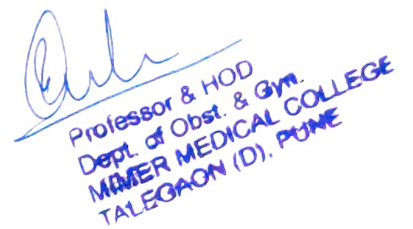 Professor & HOD
Dept. of Obst. & Gyn.
MIMER MEDICAL COLLEGE
TALEGAON (D), PUNE